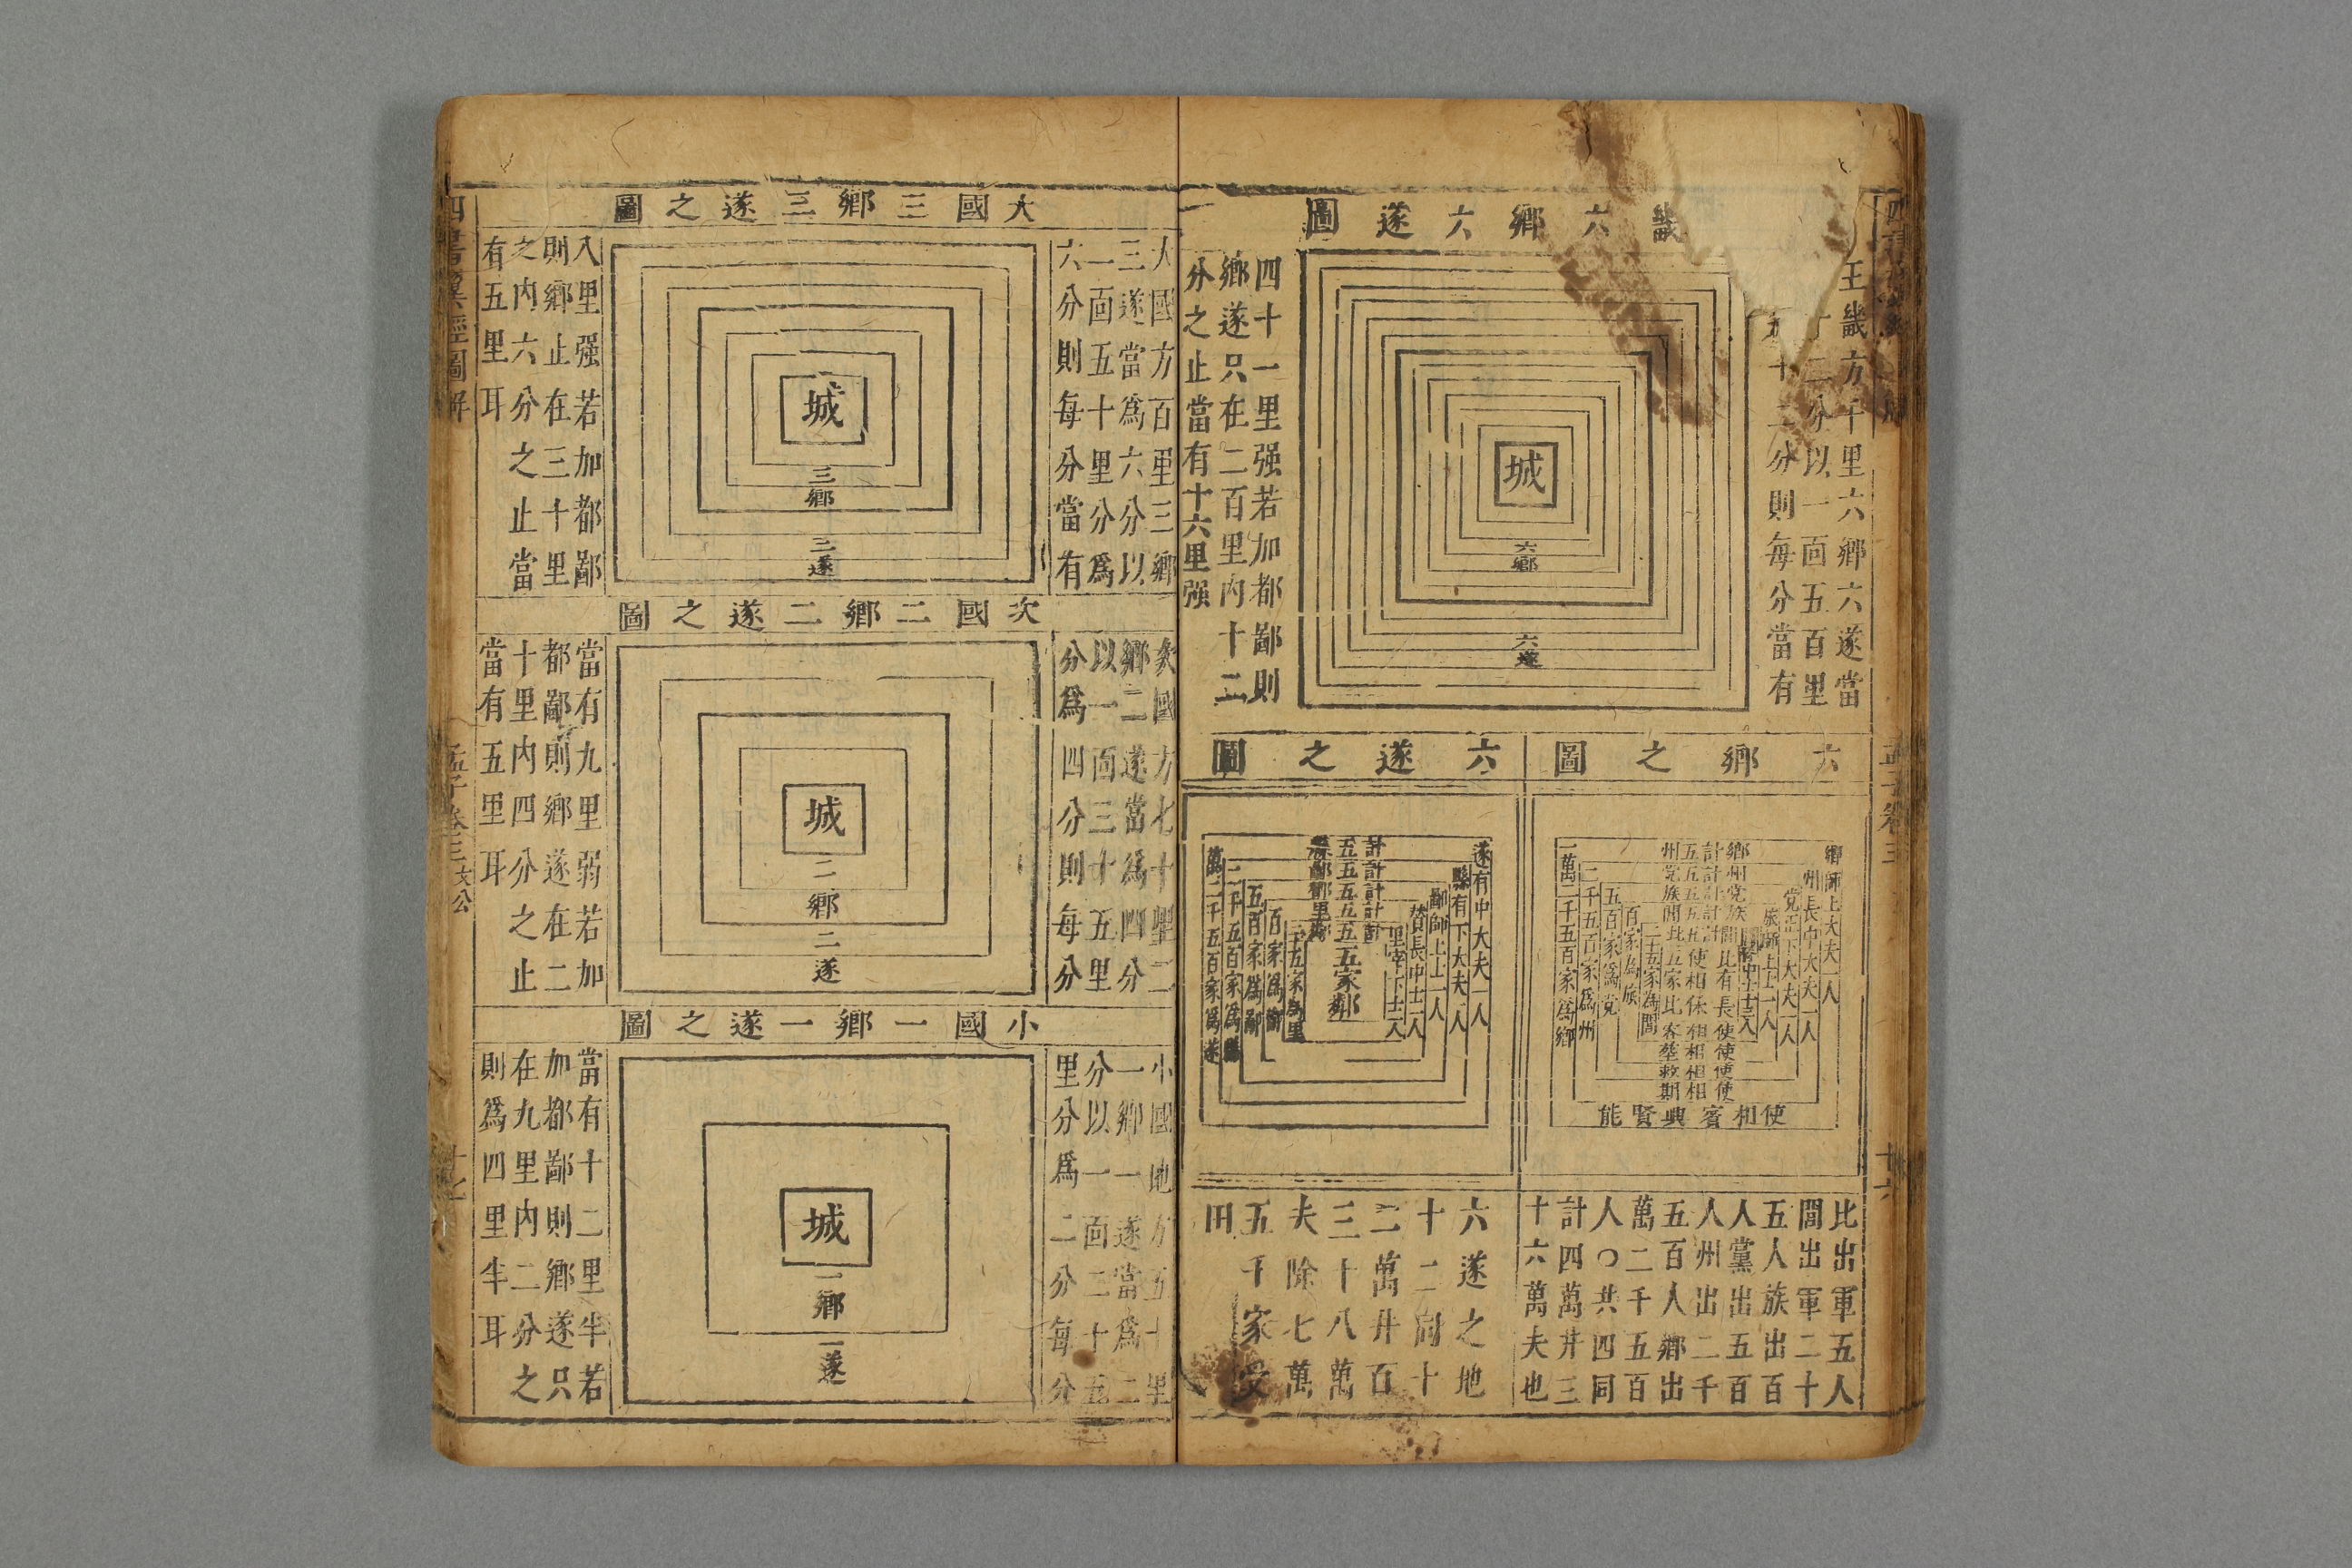 畿六鄉六遂圖
王畿方千里六鄉六遂當
十二分以一面五百里
十二分則每分當有
四十一里强若加都鄙則
鄉遂只在二百里内十二
分之止當有十六里强
城
六鄉
六遂
六鄉之圖
鄉師上大夫一人
州長中大夫一人
党正下大夫一人
族師上士一人
閭胥中士三人
鄉計五州
州計五党
党計五族
族計五閭
閭計五比
比有長使相保
五家比
二十五家為閭
百家為族
五百家為党
二千五百家爲州
一萬二千五百家爲鄉
使相賓興賢能
比出軍五人
閭出軍二十
五人族出百
人黨出五百
人州出二千
五百人鄉出
萬二千五百
人〇共四同
計四萬井三
十六萬夫也
六遂之圖
遂有中大夫一人
縣有下大夫一人
鄙師上士一人
酇長中士一人
里宰下士一人
計五縣
計五鄙
計五酇
計五里
計五鄰
五家鄰
二十五家為里
百家爲酇
五百家爲鄙
二千五百家爲縣
萬二千五百家爲遂
六遂之地
十二同十
二萬井百
三十八萬
夫除七萬
五千家受
田
大國三鄉三遂之圖
大國方百里三鄉
三遂當爲六分以
一面五十里分爲
六分則每分當有
八里强若加都鄙
則鄉止在三十里
之内六分之止當
有五里耳
城
三鄉
三遂
次國二鄉二遂之圖
次國方七十里二
鄉二遂當爲四分
以一面三十五里
分爲四分則每分
當有九里弱若加
都鄙則鄉遂在二
十里内四分之止
當有五里耳
城
二鄉
二遂
小國一鄉一遂之圖
小國地方五十里
一鄉一遂當爲二
分以一面二十五
里分爲二分每分
當有十二里半若
加都鄙則鄉遂只
在九里内二分之
則爲四里半耳
城
一鄉
一遂
四書翼經圖解
孟子卷三
文公
十七